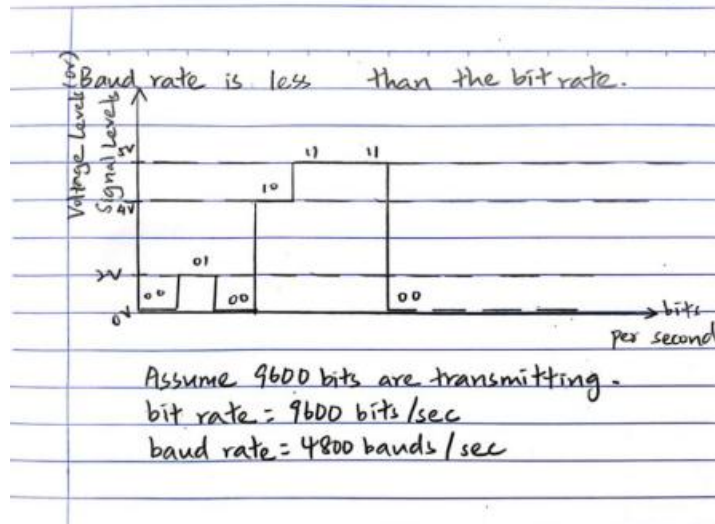 Baud rate is less than the bit rate.
Voltage Levels (or)
Signal Levels
5V
11 11
10
4V
01
2V
00 00 00
0V
bits
per second
Assume 9600 bits are transmitting.
bit rate = 9600 bits/sec
baud rate = 4800 bauds/sec